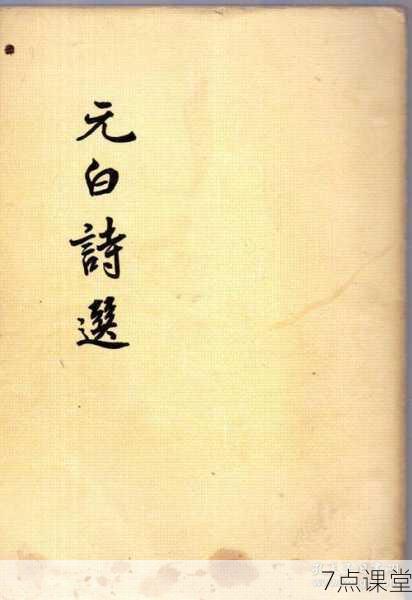 元白詩選
7点课堂